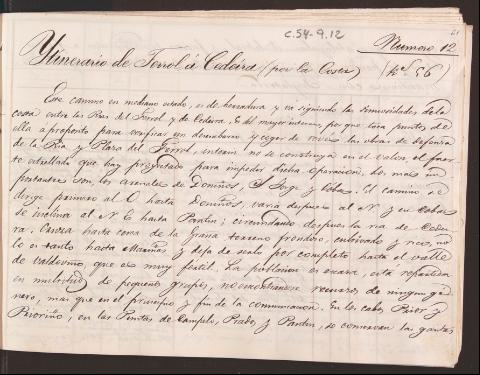 21
C.54-9.12
Numero 12
Ytinerario de Ferrol á Cedeira (por la Costa) (Kº 56)
Este camino en mediano estado, es de herradura y va siguiendo las sinuosidades de la
costa entre las Rias del Ferrol y de Cedeira. Es del mayor interes, por que toca puntos de
ella a proposito para verificar un desembarco y coger de revés las obras de defensa
de la Ria y Plaza del Ferrol, interin no se construya en el el fuer
te atrillado que hay proyectado para impedir dicha operacion. Lo mas im
portante son, los arenales de Doniños, S. Jorge y Cobas. El camino se
dirige primero al O hasta Doniños, varía despues al N y en Cobas
se inclina al N E hasta Pantin; circundando despues la ria de Cedei
ra. Cruza hasta cerca de la Graña terreno frondoso, cultivado y rico, no
lo es tanto hasta y deja de serlo por completo hasta el valle
de Valdoviño, que es muy fertil. La poblacion es escasa, está repartida
en multitud de pequeños grupos, no encontrandose recursos de ningun gé
nero, mas que en el principio y fin de la comunicacion. En los cabos Prior y
Prioriño, en las Puntas de Campelo, Prados y Pantin, se conservan las garitas